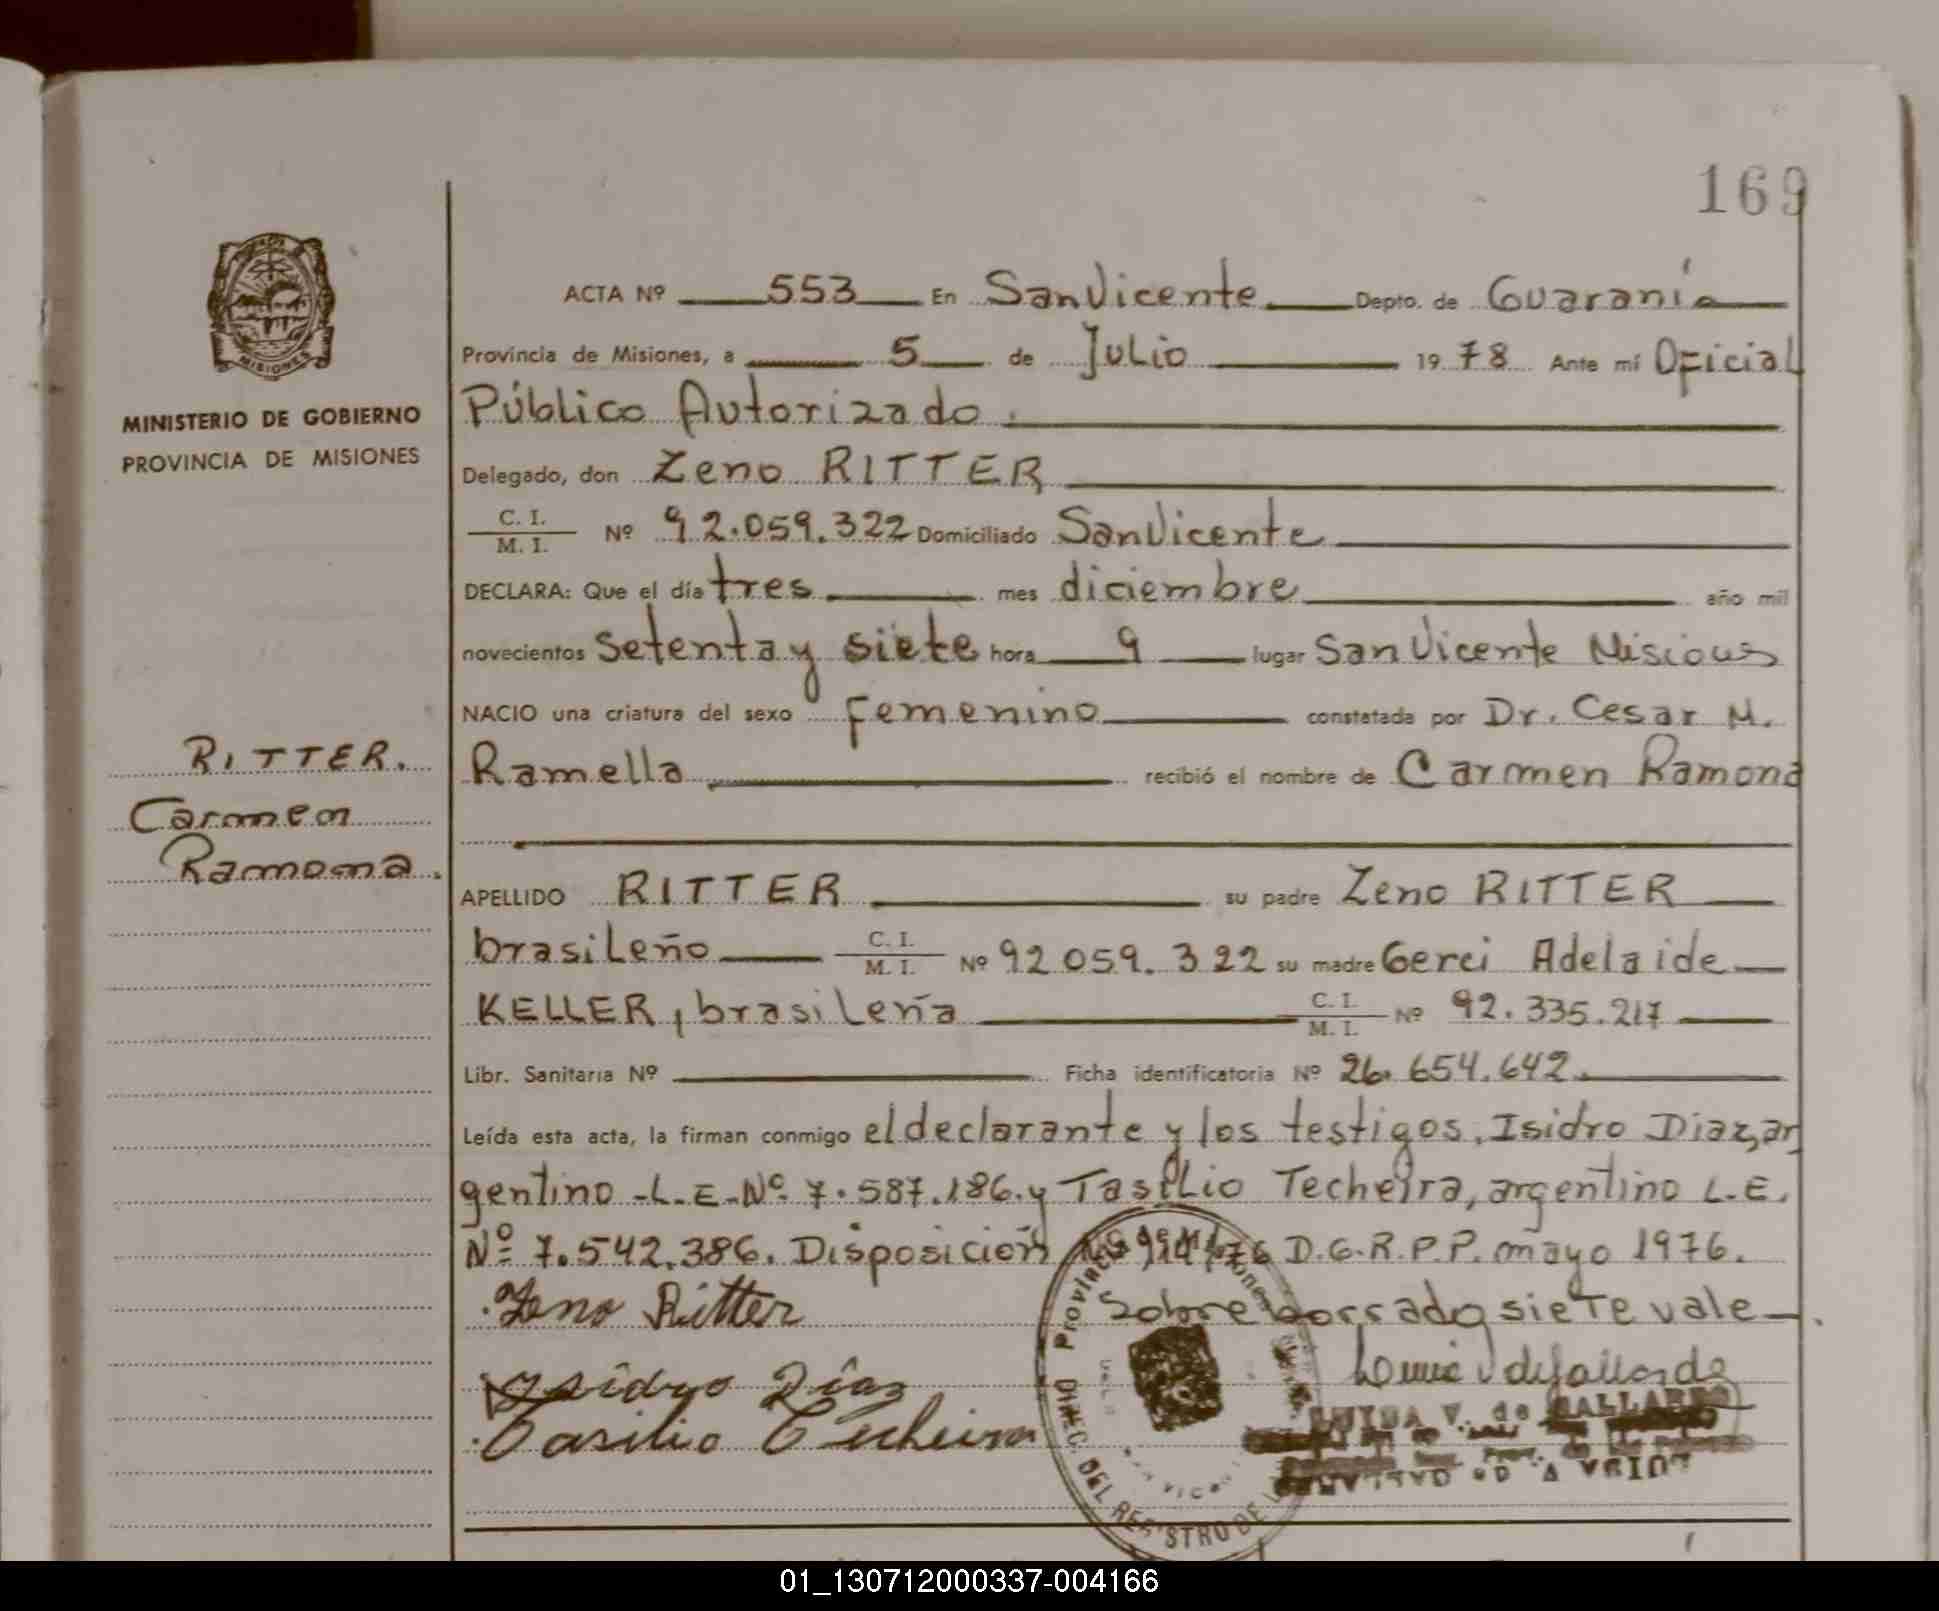 169
ACTA Nº 553 En San Vicente Depto. de Guaranía
Provincia de Misiones, a 5 de Julio 1978 Ante mí Oficial
MINISTERIO DE GOBIERNO
PROVINCIA DE MISIONES
MISIONES
Público Autorizado.
Delegado, don Zeno RITTER
C. I.
M. I. Nº 92.059.322 Domiciliado San Vicente
DECLARA: Que el día tres mes diciembre año mil
novecientos setenta y siete hora 9 lugar San Vicente Misiones
NACIO una criatura del sexo femenino constatada por Dr. Cesar M.
RITTER.
Carmen
Ramona.
Ramella recibió el nombre de Carmen Ramona
APELLIDO RITTER su padre Zeno RITTER
brasileño C. I.
M. I. Nº 92 059. 322 su madre Gerci Adelaide
KELLER, brasileña C. I.
M. I. Nº 92.335.217
Libr. Sanitaria Nº Ficha identificatoria Nº 26.654.642.
Leída esta acta, la firman conmigo el declarante y los testigos, Isidro Diaz, ar
gentino -L.E.Nº 7.587.186. y Tasilio Techeira, argentino L.E.
Nº 7.542.386. Disposición D.G.R.P.P. mayo 1976.
Zeno Ritter Sobre borrado siete vale
Isidro Díaz
Tasilio Techeira
LUISA V. de GALLARDO
Provincia
DEL REGISTRO DE
01_130712000337-004166